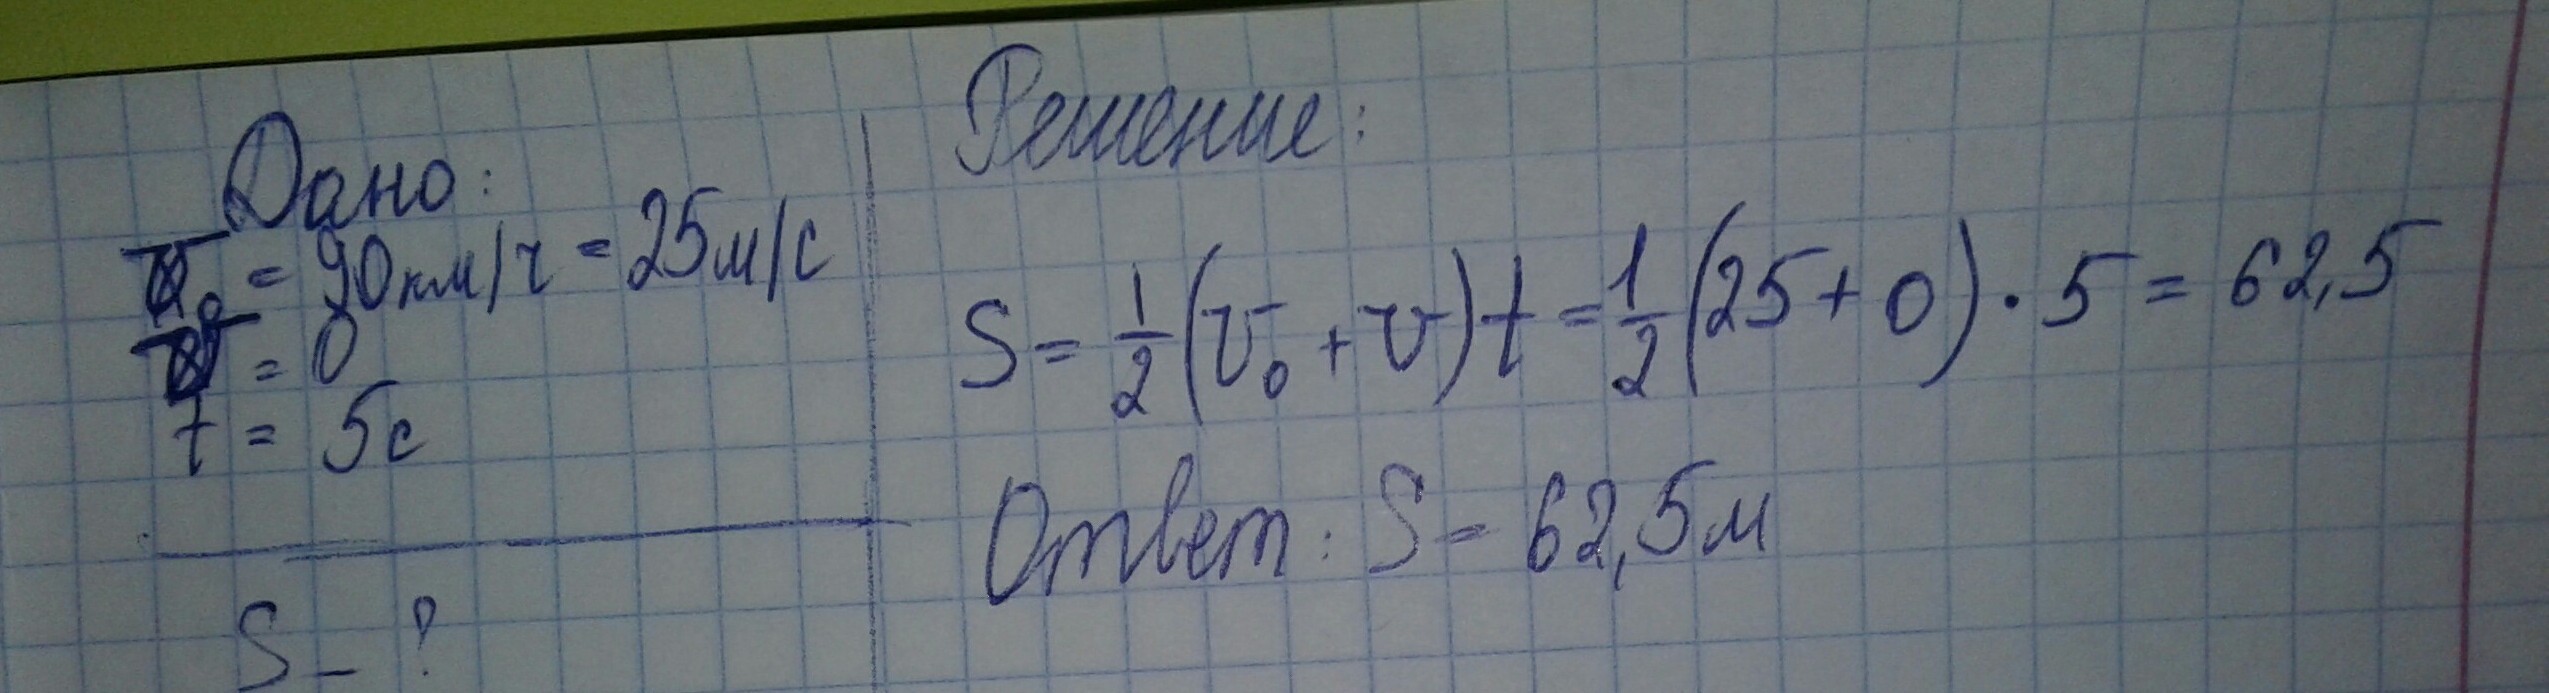 Дано:
v₀ = 90км/ч = 25м/с
v = 0
t = 5с
S - ?
Решение:
S = 1/2 (v₀ + v) t = 1/2 (25 + 0) · 5 = 62,5
Ответ: S = 62,5м